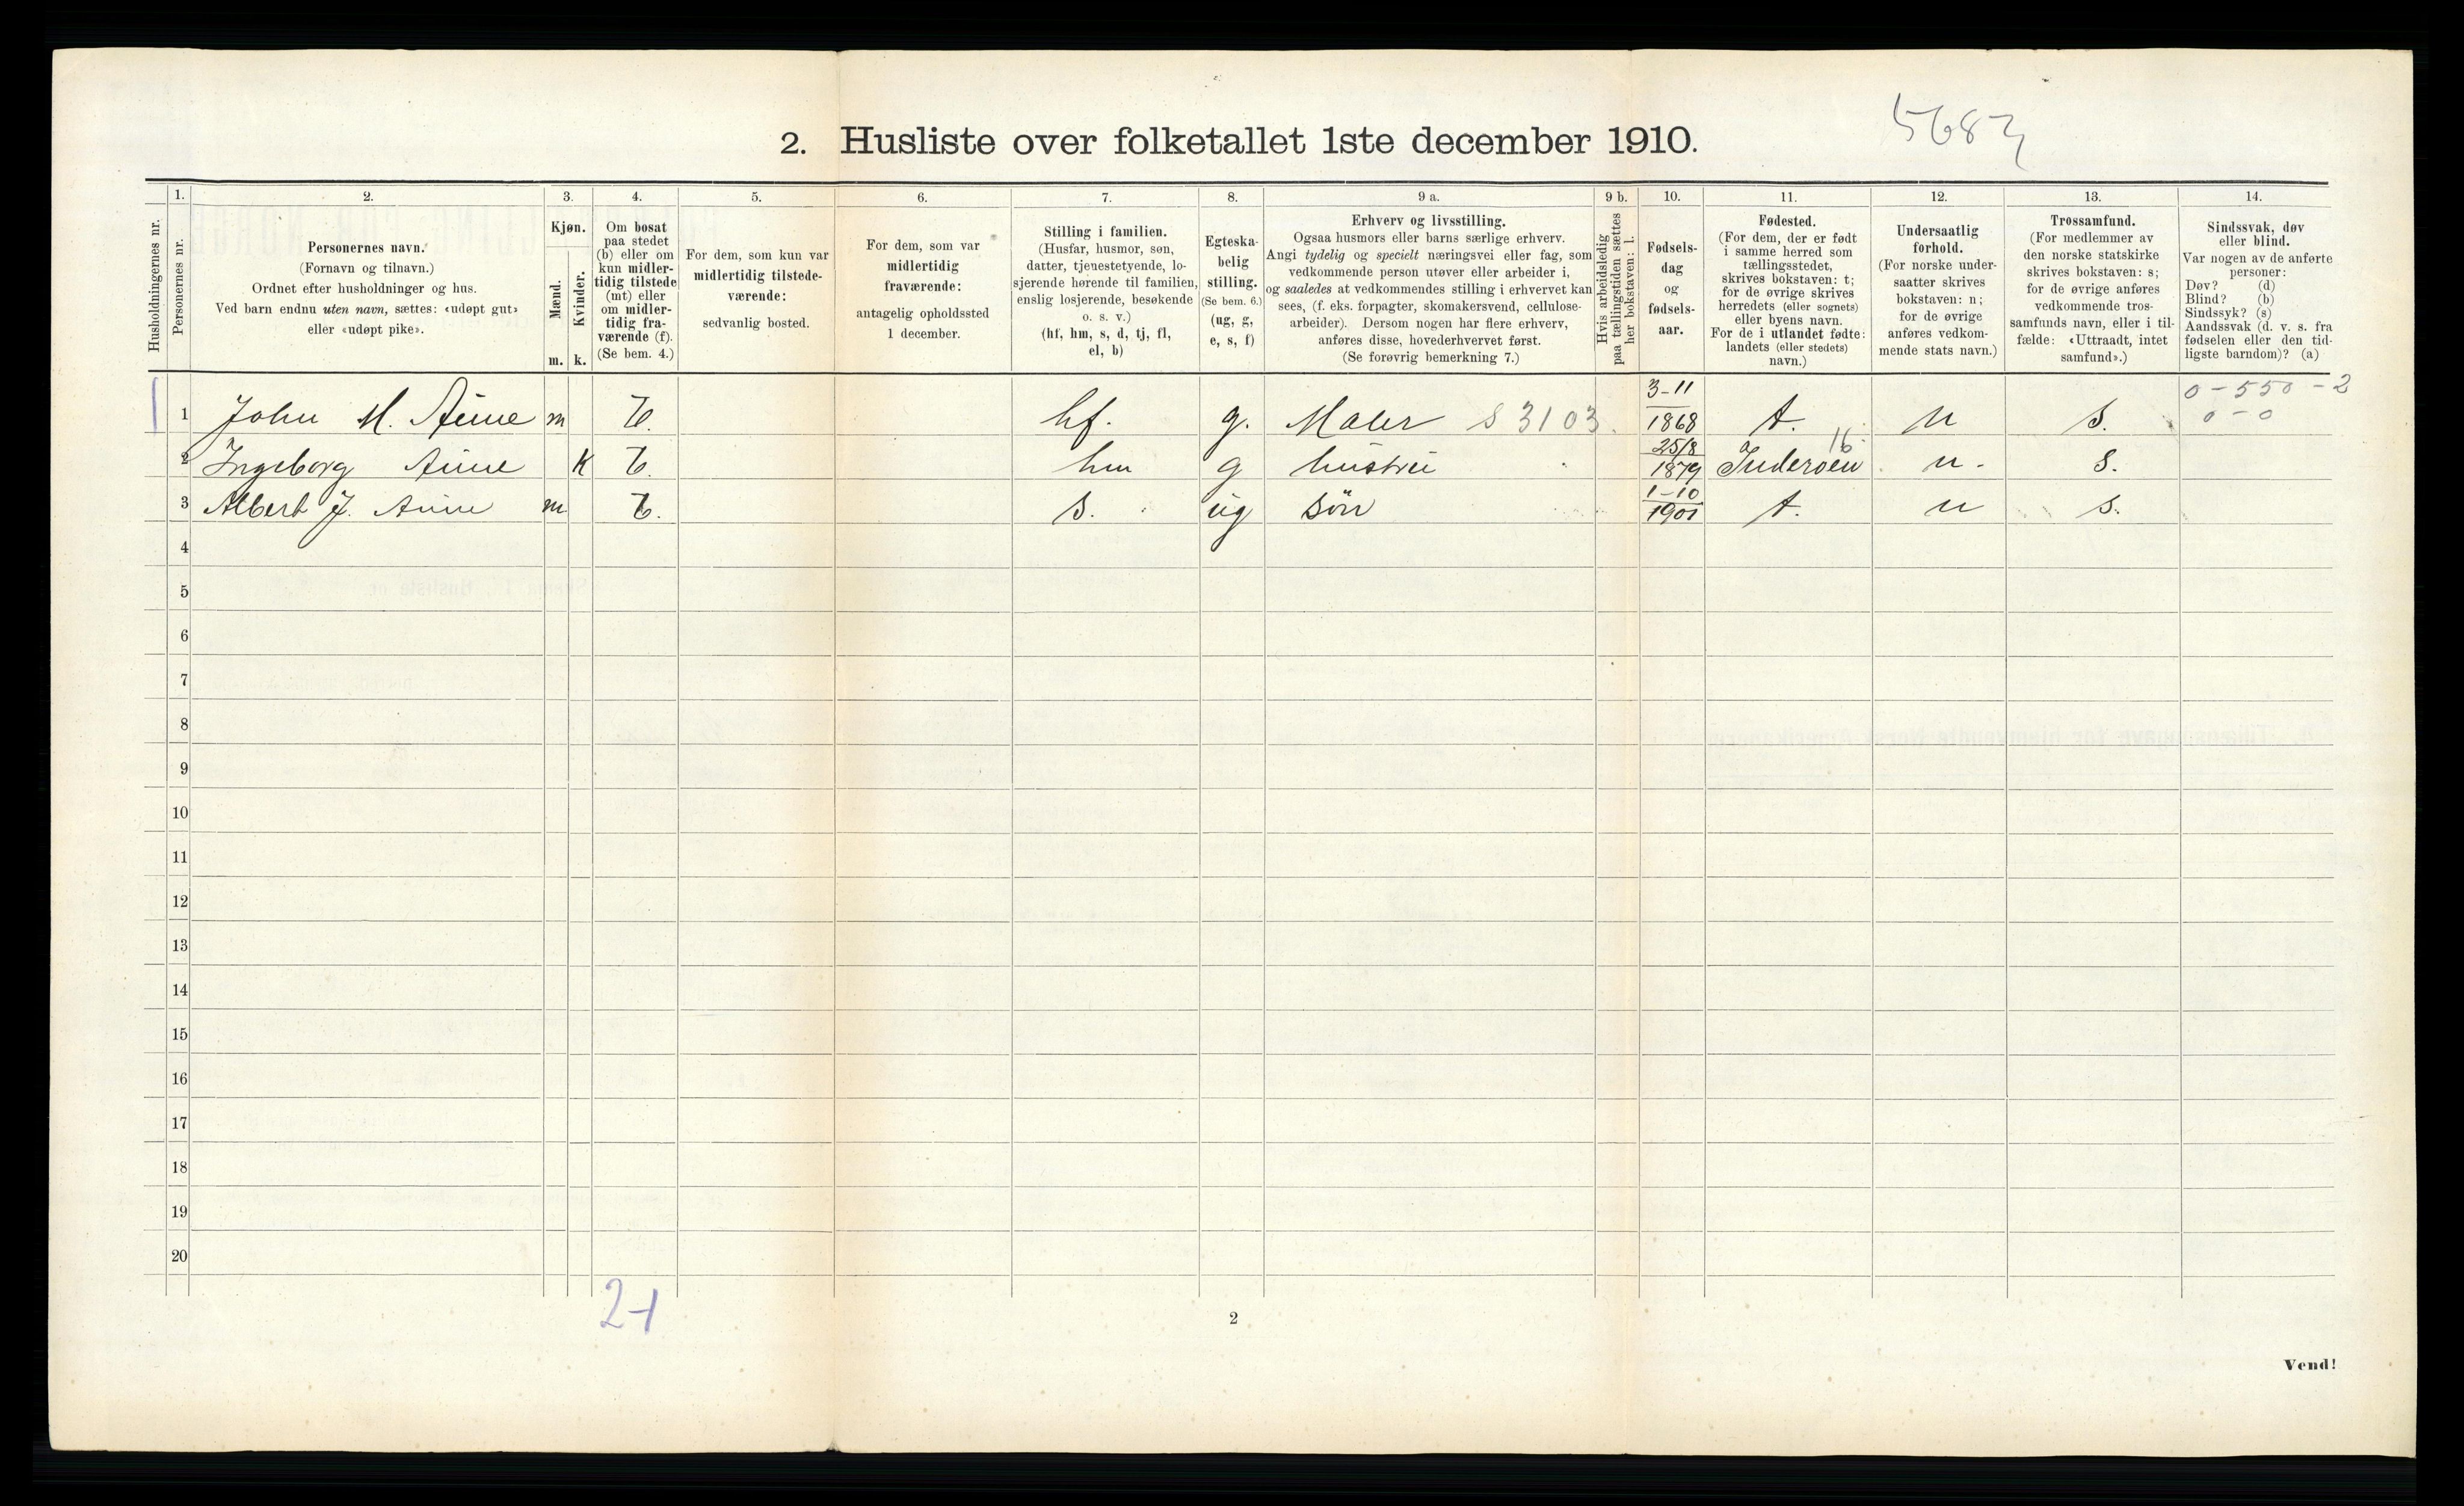 5683
2. Husliste over folketallet 1ste december 1910.
Husholdningernes nr.
1.
Personernes nr.
2.
Personernes navn.
(Fornavn og tilnavn.)
Ordnet efter husholdninger og hus.
Ved barn endnu uten navn, sættes: «udøpt gut»
eller «udøpt pike».
3.
Kjøn.
Mænd.
Kvinder.
m. k.
4.
Om bosat
paa stedet
(b) eller om
kun midler-
tidig tilstede
(mt) eller
om midler-
tidig fra-
værende (f).
(Se bem. 4.)
5.
For dem, som kun var
midlertidig tilstede-
værende:
sedvanlig bosted.
6.
For dem, som var
midlertidig
fraværende:
antagelig opholdssted
1 december.
7.
Stilling i familien.
(Husfar, husmor, søn,
datter, tjenestetyende, lo-
sjerende hørende til familien,
enslig losjerende, besøkende
o. s. v.)
(hf, hm, s, d, tj, fl,
el, b)
8.
Egteska-
belig
stilling.
(Se bem. 6.)
(ug, g,
e, s, f)
9 a.
Erhverv og livsstilling.
Ogsaa husmors eller barns særlige erhverv.
Angi tydelig og specielt næringsvei eller fag, som
vedkommende person utøver eller arbeider i,
og saaledes at vedkommendes stilling i erhvervet kan
sees, (f. eks. forpagter, skomakersvend, cellulose-
arbeider). Dersom nogen har flere erhverv,
anføres disse, hovederhvervet først.
(Se forøvrig bemerkning 7.)
9 b.
Hvis arbeidsledig
paa tællingstiden sættes
her bokstaven: l.
10.
Fødsels-
dag
og
fødsels-
aar.
11.
Fødested.
(For dem, der er født
i samme herred som
tællingsstedet,
skrives bokstaven: t;
for de øvrige skrives
herredets (eller sognets)
eller byens navn.
For de i utlandet fødte:
landets (eller stedets)
navn.)
12.
Undersaatlig
forhold.
(For norske under-
saatter skrives
bokstaven: n;
for de øvrige
anføres vedkom-
mende stats navn.)
13.
Trossamfund.
(For medlemmer av
den norske statskirke
skrives bokstaven: s;
for de øvrige anføres
vedkommende tros-
samfunds navn, eller i til-
fælde: «Uttraadt, intet
samfund».)
14.
Sindssvak, døv
eller blind.
Var nogen av de anførte
personer:
Døv? (d)
Blind? (b)
Sindssyk? (s)
Aandssvak (d. v. s. fra
fødselen eller den tid-
ligste barndom)? (a)
1 John M. Aune m b. hf. g. Maler S 3103. 3-11 1868 t. n s. 0-550-2 0-0
2 Ingeborg Aune K b. hm g hustru 25/8 1879 Inderøen 16 n. s.
3 Albert J. Aune m b. s. ug Sön 1-10 1901 t. n s.
4
5
6
7
8
9
10
11
12
13
14
15
16
17
18
19
20
2-1
2
Vend!